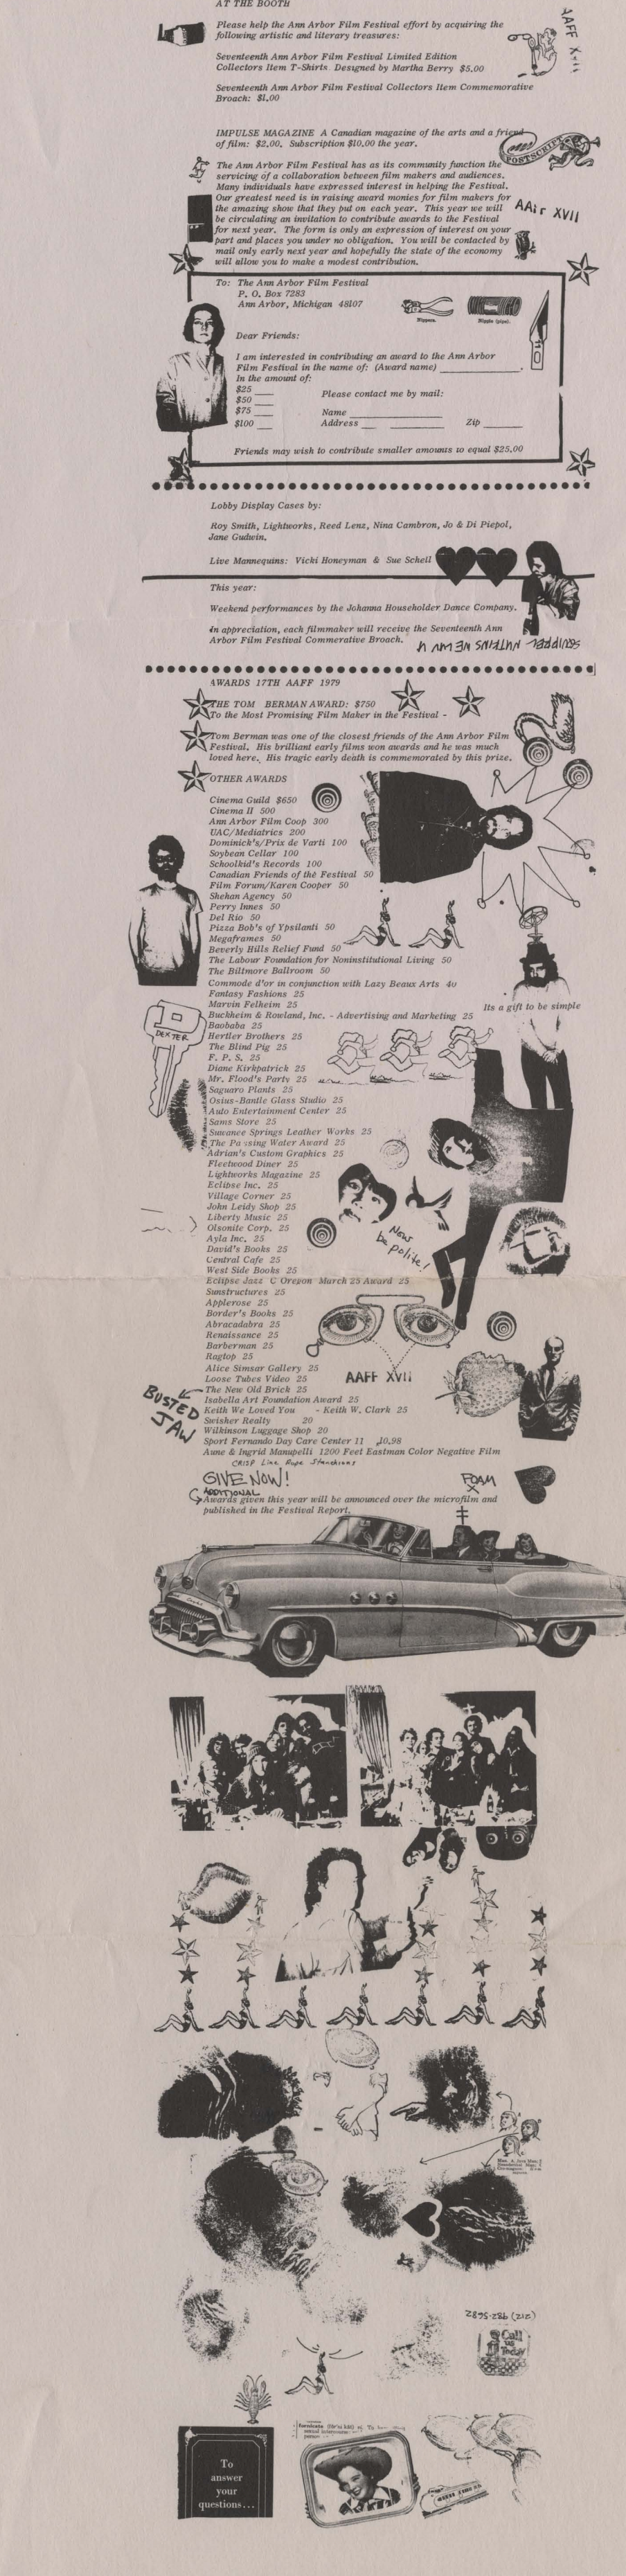 AT THE BOOTH
Please help the Ann Arbor Film Festival effort by acquiring the
following artistic and literary treasures:
Seventeenth Ann Arbor Film Festival Limited Edition
Collectors Item T-Shirts Designed by Martha Berry $5.00
Seventeenth Ann Arbor Film Festival Collectors Item Commemorative
Broach: $1.00
IMPULSE MAGAZINE A Canadian magazine of the arts and a friend
of film: $2.00. Subscription $10.00 the year.
POSTSCRIPT
The Ann Arbor Film Festival has as its community function the
servicing of a collaboration between film makers and audiences.
Many individuals have expressed interest in helping the Festival.
Our greatest need is in raising award monies for film makers for
the amazing show that they put on each year. This year we will
be circulating an invitation to contribute awards to the Festival
for next year. The form is only an expression of interest on your
part and places you under no obligation. You will be contacted by
mail only early next year and hopefully the state of the economy
will allow you to make a modest contribution.
To: The Ann Arbor Film Festival
P. O. Box 7283
Ann Arbor, Michigan 48107
Nippers.
Nipple (pipe).
Dear Friends:
I am interested in contributing an award to the Ann Arbor
Film Festival in the name of: (Award name) ____________.
In the amount of:
$25 ___
$50 ___ Please contact me by mail:
$75 ___ Name ______________
$100 ___ Address ___ ________ Zip ___
Friends may wish to contribute smaller amounts to equal $25.00
Lobby Display Cases by:
Roy Smith, Lightworks, Reed Lenz, Nina Cambron, Jo & Di Piepol,
Jane Gudwin.
Live Mannequins: Vicki Honeyman & Sue Scheil
This year:
Weekend performances by the Johanna Householder Dance Company.
In appreciation, each filmmaker will receive the Seventeenth Ann
Arbor Film Festival Commerative Broach.
AWARDS 17TH AAFF 1979
THE TOM BERMAN AWARD: $750
To the Most Promising Film Maker in the Festival -
Tom Berman was one of the closest friends of the Ann Arbor Film
Festival. His brilliant early films won awards and he was much
loved here. His tragic early death is commemorated by this prize.
OTHER AWARDS
Cinema Guild $650
Cinema II 500
Ann Arbor Film Coop 300
UAC/Mediatrics 200
Dominick's/Prix de Varti 100
Soybean Cellar 100
Schoolkid's Records 100
Canadian Friends of the Festival 50
Film Forum/Karen Cooper 50
Shehan Agency 50
Perry Innes 50
Del Rio 50
Pizza Bob's of Ypsilanti 50
Megaframes 50
Beverly Hills Relief Fund 50
The Labour Foundation for Noninstitutional Living 50
The Biltmore Ballroom 50
Commode d'or in conjunction with Lazy Beaux Arts 40
Fantasy Fashions 25
Marvin Felheim 25
Its a gift to be simple
Buckheim & Rowland, Inc. - Advertising and Marketing 25
Baobaba 25
DEXTER
Hertler Brothers 25
The Blind Pig 25
F. P. S. 25
Diane Kirkpatrick 25
Mr. Flood's Party 25
Saguaro Plants 25
Osius-Bantle Glass Studio 25
Auto Entertainment Center 25
Sams Store 25
Suwanee Springs Leather Works 25
The Passing Water Award 25
Adrian's Custom Graphics 25
Fleetwood Diner 25
Lightworks Magazine 25
Eclipse Inc. 25
Village Corner 25
John Leidy Shop 25
Liberty Music 25
Olsonite Corp. 25
Now be polite!
Ayla Inc. 25
David's Books 25
Central Cafe 25
West Side Books 25
Eclipse Jazz C Oregon March 25 Award 25
Sunstructures 25
Applerose 25
Border's Books 25
Abracadabra 25
Renaissance 25
Barberman 25
Ragtop 25
Alice Simsar Gallery 25
AAFF XVII
Loose Tubes Video 25
BUSTED JAW
The New Old Brick 25
Isabella Art Foundation Award 25
Keith We Loved You - Keith W. Clark 25
Swisher Realty 20
Wilkinson Luggage Shop 20
Sport Fernando Day Care Center 11 10.98
Aune & Ingrid Manupelli 1200 Feet Eastman Color Negative Film
CRISP Line Rope Stanchions
GIVE NOW!
FOAM
ADDITIONAL
Awards given this year will be announced over the microfilm and
published in the Festival Report.
(212) 982-5682
Call us Today
fornicate
To
answer
your
questions...